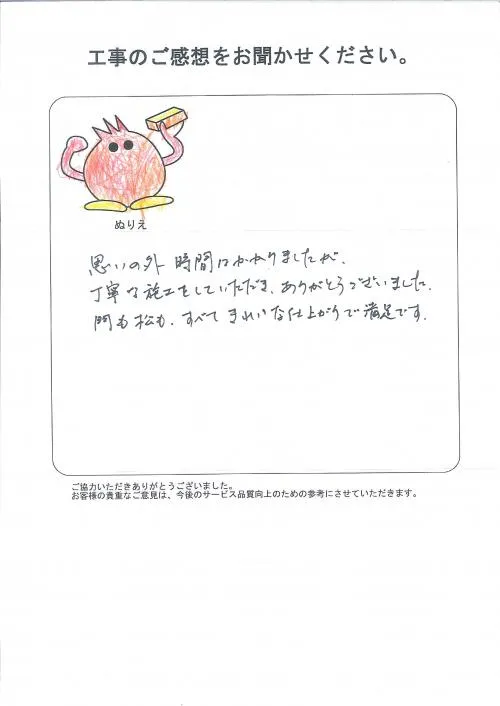 工事のご感想をお聞かせください。
ぬりえ
思いの外 時間はかかりましたが、
丁寧な施工をしていただき、ありがとうございました。
門も松も、すべて きれいな仕上がりで満足です。
ご協力いただきありがとうございました。
お客様の貴重なご意見は、今後のサービス品質向上のための参考にさせていただきます。